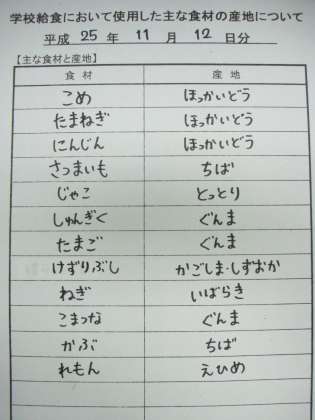 学校給食において使用した主な食材の産地について
平成 25 年 11 月 12 日分
【主な食材と産地】
食材 産地
こめ ほっかいどう
たまねぎ ほっかいどう
にんじん ほっかいどう
さつまいも ちば
じゃこ とっとり
しゅんぎく ぐんま
たまご ぐんま
けずりぶし かごしま・しずおか
ねぎ いばらき
こまつな ぐんま
かぶ ちば
れもん えひめ